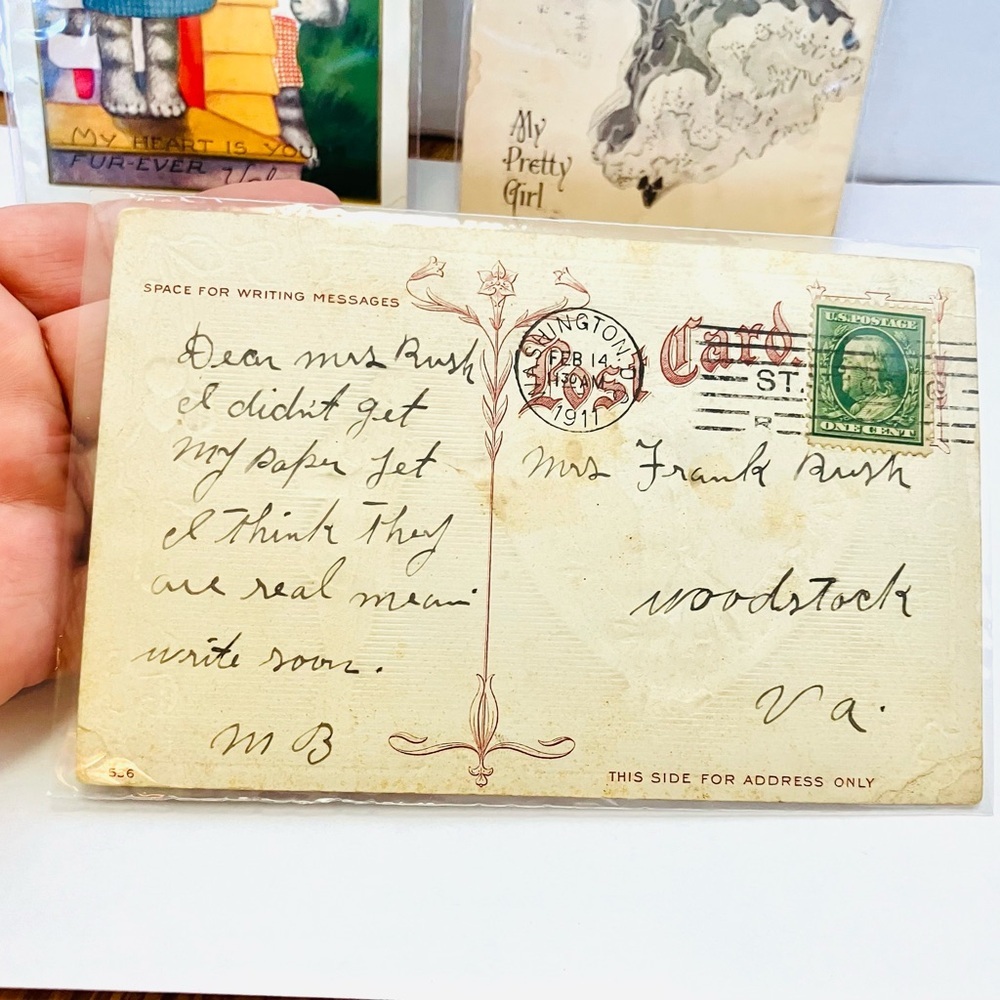 MY HEART IS YOU
FUR-EVER
My
Pretty
Girl
SPACE FOR WRITING MESSAGES
Post Card.
WASHINGTON, D
FEB 14
1130 AM
1911
ST.
U.S. POSTAGE
ONE CENT
Dear mrs Rush
I didn't get
My paper yet
I think they
are real mean
write soon.
M B
Mrs Frank Rush
woodstock
Va.
536
THIS SIDE FOR ADDRESS ONLY